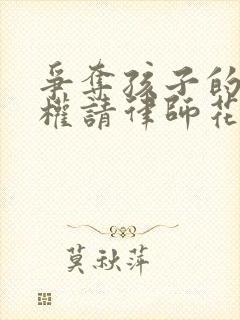 爭奪孩子的
權請律師花
莫秋萍